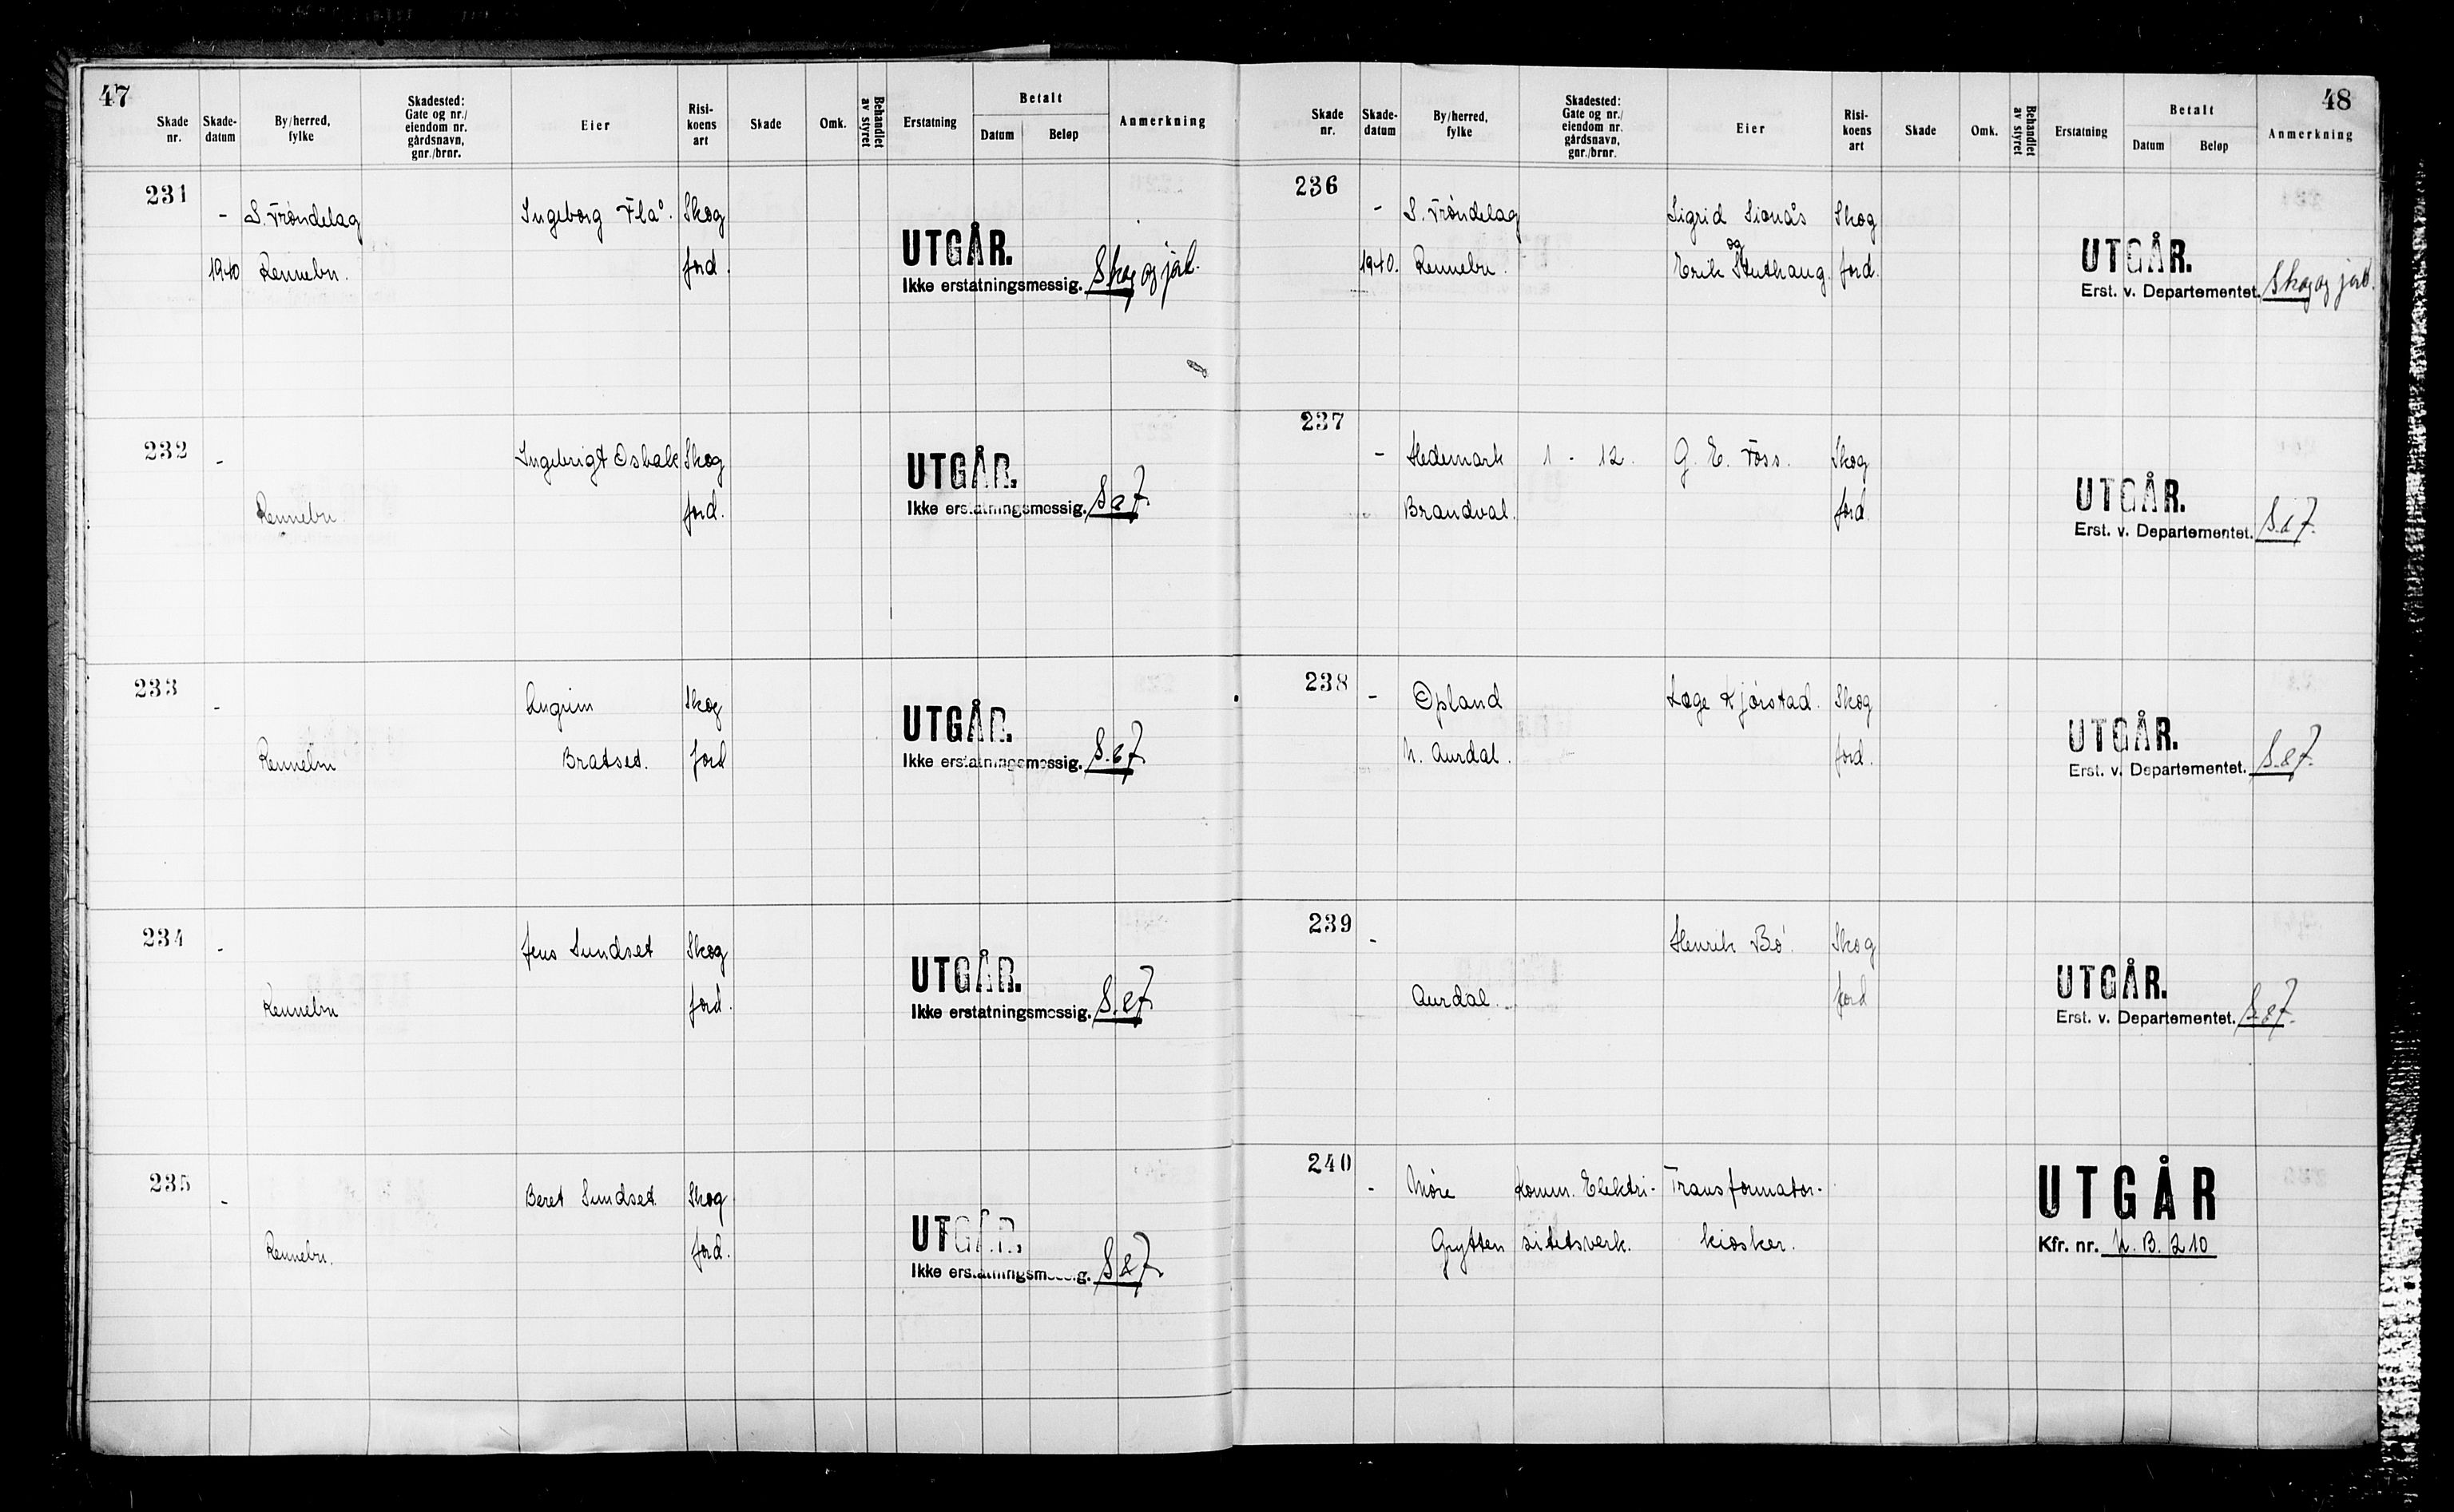 47
Skade nr.
Skade-datum
By/herred, fylke
Skadested: Gate og nr./ eiendom nr. gårdsnavn, gnr./brnr.
Eier
Risi-koens art
Skade
Omk.
Behandlet av styret
Erstatning
Betalt
Datum
Beløp
Anmerkning
231
- S. Trøndelag Ingeborg Flå. Skog
1940 Rennebu. Jord.
UTGÅR.
Ikke erstatningsmessig. Skog og jord.
232
- Skog
Rennebu. Jord.
UTGÅR.
Ikke erstatningsmessig.
233
- Skog
Rennebu Bratset. Jord
UTGÅR.
Ikke erstatningsmessig.
234
- Jens Sundset Skog
Rennebu Jord.
UTGÅR.
Ikke erstatningsmessig.
235
- Beret Sundset. Skog
Rennebu. Jord.
UTGÅR.
Ikke erstatningsmessig.
48
Skade nr.
Skade-datum
By/herred, fylke
Skadested: Gate og nr./ eiendom nr. gårdsnavn, gnr./brnr.
Eier
Risi-koens art
Skade
Omk.
Behandlet av styret
Erstatning
Betalt
Datum
Beløp
Anmerkning
236
- S. Trøndelag Sigrid Skog
og
1940. Rennebu. Erik Jord.
UTGÅR.
Erst. v. Departementet. Skog og jord.
237
- Hedemark 1 - 12. G. E. Foss. Skog
Brandval. Jord.
UTGÅR.
Erst. v. Departementet.
238
- Opland Kjørstad. Skog
N. Aurdal. Jord.
UTGÅR.
Erst. v. Departementet.
239
- Henrik Bø. Skog
Aurdal. Jord
UTGÅR.
Erst. v. Departementet.
240
- Møre Komm. Elektri- Transformator-
Grytten sitetsverk. kiosker.
UTGÅR
Kfr. nr. N. B. 210